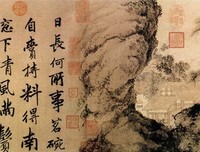 日長何所事茗碗
自賷持料得南
窓下清風滿鬢